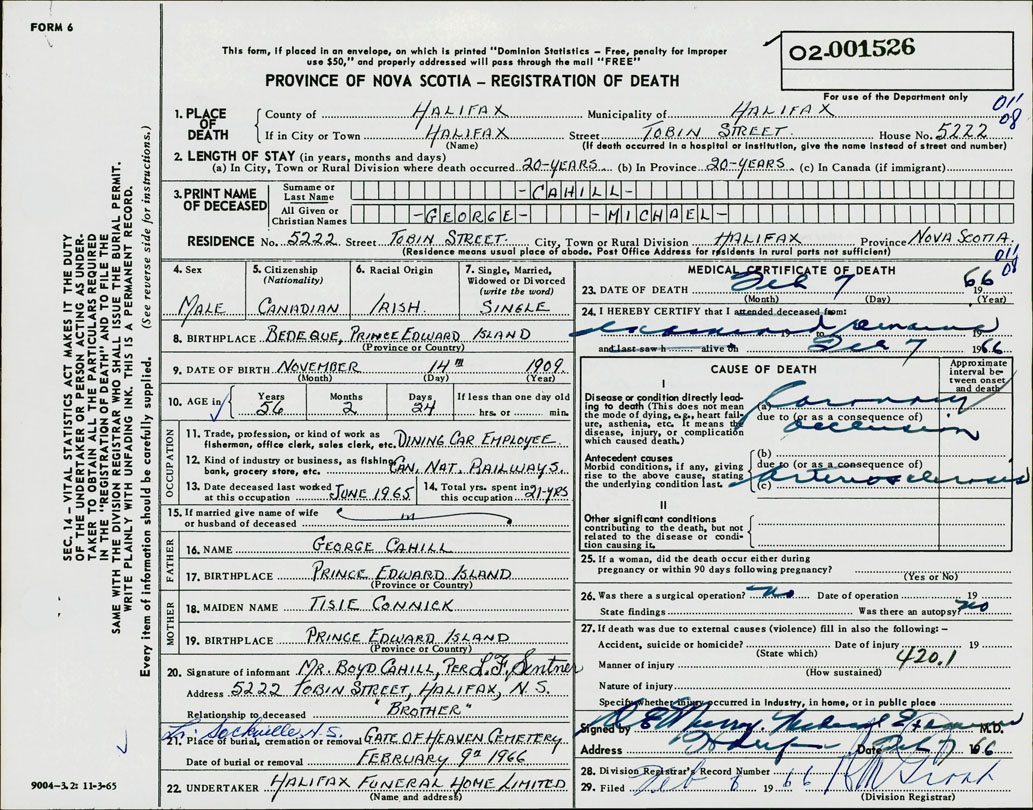 FORM 6
This form, if placed in an envelope, on which is printed "Dominion Statistics – Free, penalty for improper
use $50," and properly addressed will pass through the mail "FREE"
PROVINCE OF NOVA SCOTIA – REGISTRATION OF DEATH
02-001526
For use of the Department only
011
08
1. PLACE OF DEATH { County of HALIFAX Municipality of HALIFAX
If in City or Town HALIFAX Street TOBIN STREET. House No. 5222
(Name) (If death occurred in a hospital or institution, give the name instead of street and number)
2. LENGTH OF STAY (in years, months and days)
(a) In City, Town or Rural Division where death occurred 20-YEARS (b) In Province 20-YEARS (c) In Canada (if immigrant)
3. PRINT NAME OF DECEASED { Surname or Last Name -CAHILL-
All Given or Christian Names -GEORGE- -MICHAEL-
RESIDENCE No. 5222 Street TOBIN STREET. City, Town or Rural Division HALIFAX Province NOVA SCOTIA
(Residence means usual place of abode. Post Office Address for residents in rural parts not sufficient)
011
08
SEC. 14 – VITAL STATISTICS ACT MAKES IT THE DUTY
OF THE UNDERTAKER OR PERSON ACTING AS UNDER-
TAKER TO OBTAIN ALL THE PARTICULARS REQUIRED
IN THE "REGISTRATION OF DEATH" AND TO FILE THE
SAME WITH THE DIVISION REGISTRAR WHO SHALL ISSUE THE BURIAL PERMIT.
WRITE PLAINLY WITH UNFADING INK. THIS IS A PERMANENT RECORD.
Every item of information should be carefully supplied. (See reverse side for instructions.)
4. Sex MALE
5. Citizenship (Nationality) CANADIAN
6. Racial Origin IRISH.
7. Single, Married, Widowed or Divorced (write the word) SINGLE
8. BIRTHPLACE BEDEQUE, PRINCE EDWARD ISLAND
(Province or Country)
9. DATE OF BIRTH NOVEMBER 14TH 1909.
(Month) (Day) (Year)
10. AGE in { Years 56 Months 2 Days 24 If less than one day old hrs. or min.
OCCUPATION
11. Trade, profession, or kind of work as
fisherman, office clerk, sales clerk, etc. DINING CAR EMPLOYEE.
12. Kind of industry or business, as fishing,
bank, grocery store, etc. CAN. NAT. RAILWAYS.
13. Date deceased last worked at this occupation JUNE 1965
14. Total yrs. spent in this occupation 21-YRS
15. If married give name of wife
or husband of deceased
FATHER
16. NAME GEORGE CAHILL
17. BIRTHPLACE PRINCE EDWARD ISLAND
(Province or Country)
MOTHER
18. MAIDEN NAME TISIE CONNICK
19. BIRTHPLACE PRINCE EDWARD ISLAND
(Province or Country)
20. Signature of informant MR. BOYD CAHILL, PER L.F. Sentner
Address 5222 TOBIN STREET, HALIFAX, N.S.
Relationship to deceased "BROTHER"
Sackville N.S.
21. Place of burial, cremation or removal GATE OF HEAVEN CEMETERY
Date of burial or removal FEBRUARY 9th 1966
22. UNDERTAKER HALIFAX FUNERAL HOME LIMITED
(Name and address)
9004-3.2: 11-3-65
MEDICAL CERTIFICATE OF DEATH
23. DATE OF DEATH Feb 7 1966
(Month) (Day) (Year)
24. I HEREBY CERTIFY that I attended deceased from:
examined remains
19 to 19
and last saw h alive on Feb 7 1966
CAUSE OF DEATH
Approximate interval between onset and death
I
Disease or condition directly lead-
ing to death (This does not mean
the mode of dying, e.g., heart fail-
ure, asthenia, etc. It means the
disease, injury, or complication
which caused death.)
(a) Coronary
due to (or as a consequence of)
occlusion
Antecedent causes
Morbid conditions, if any, giving
rise to the above cause, stating
the underlying condition last.
(b)
due to (or as a consequence of)
arteriosclerosis
(c)
II
Other significant conditions
contributing to the death, but not
related to the disease or condi-
tion causing it.
25. If a woman, did the death occur either during
pregnancy or within 90 days following pregnancy?
(Yes or No)
26. Was there a surgical operation? no Date of operation 19
State findings Was there an autopsy? no
27. If death was due to external causes (violence) fill in also the following: –
Accident, suicide or homicide? Date of injury 19
(State which)
420.1
Manner of injury
(How sustained)
Nature of injury
Specify whether injury occurred in Industry, in home, or in public place
Signed by Murray, Medical Examiner M.D.
Address Halifax Date Feb 7 1966
28. Division Registrar's Record Number
29. Filed Feb 1966
(Division Registrar)